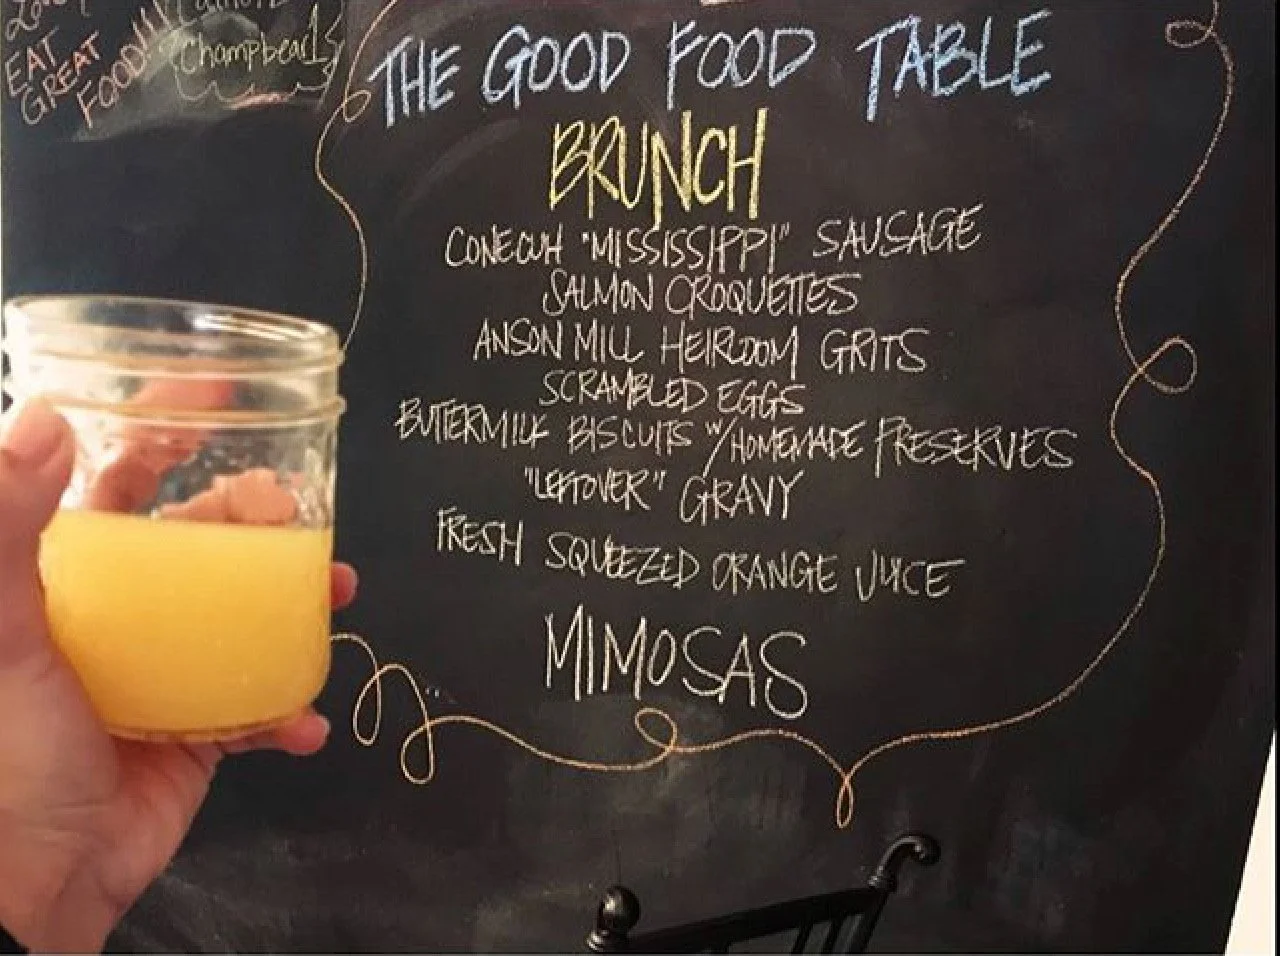 EAT
GREAT
FOOD!!!
Champbear1s
THE GOOD FOOD TABLE
BRUNCH
CONECUH "MISSISSIPPI" SAUSAGE
SALMON CROQUETTES
ANSON MILL HEIRLOOM GRITS
SCRAMBLED EGGS
BUTTERMILK BISCUITS W/HOMEMADE PRESERVES
"LEFTOVER" GRAVY
FRESH SQUEEZED ORANGE JUICE
MIMOSAS